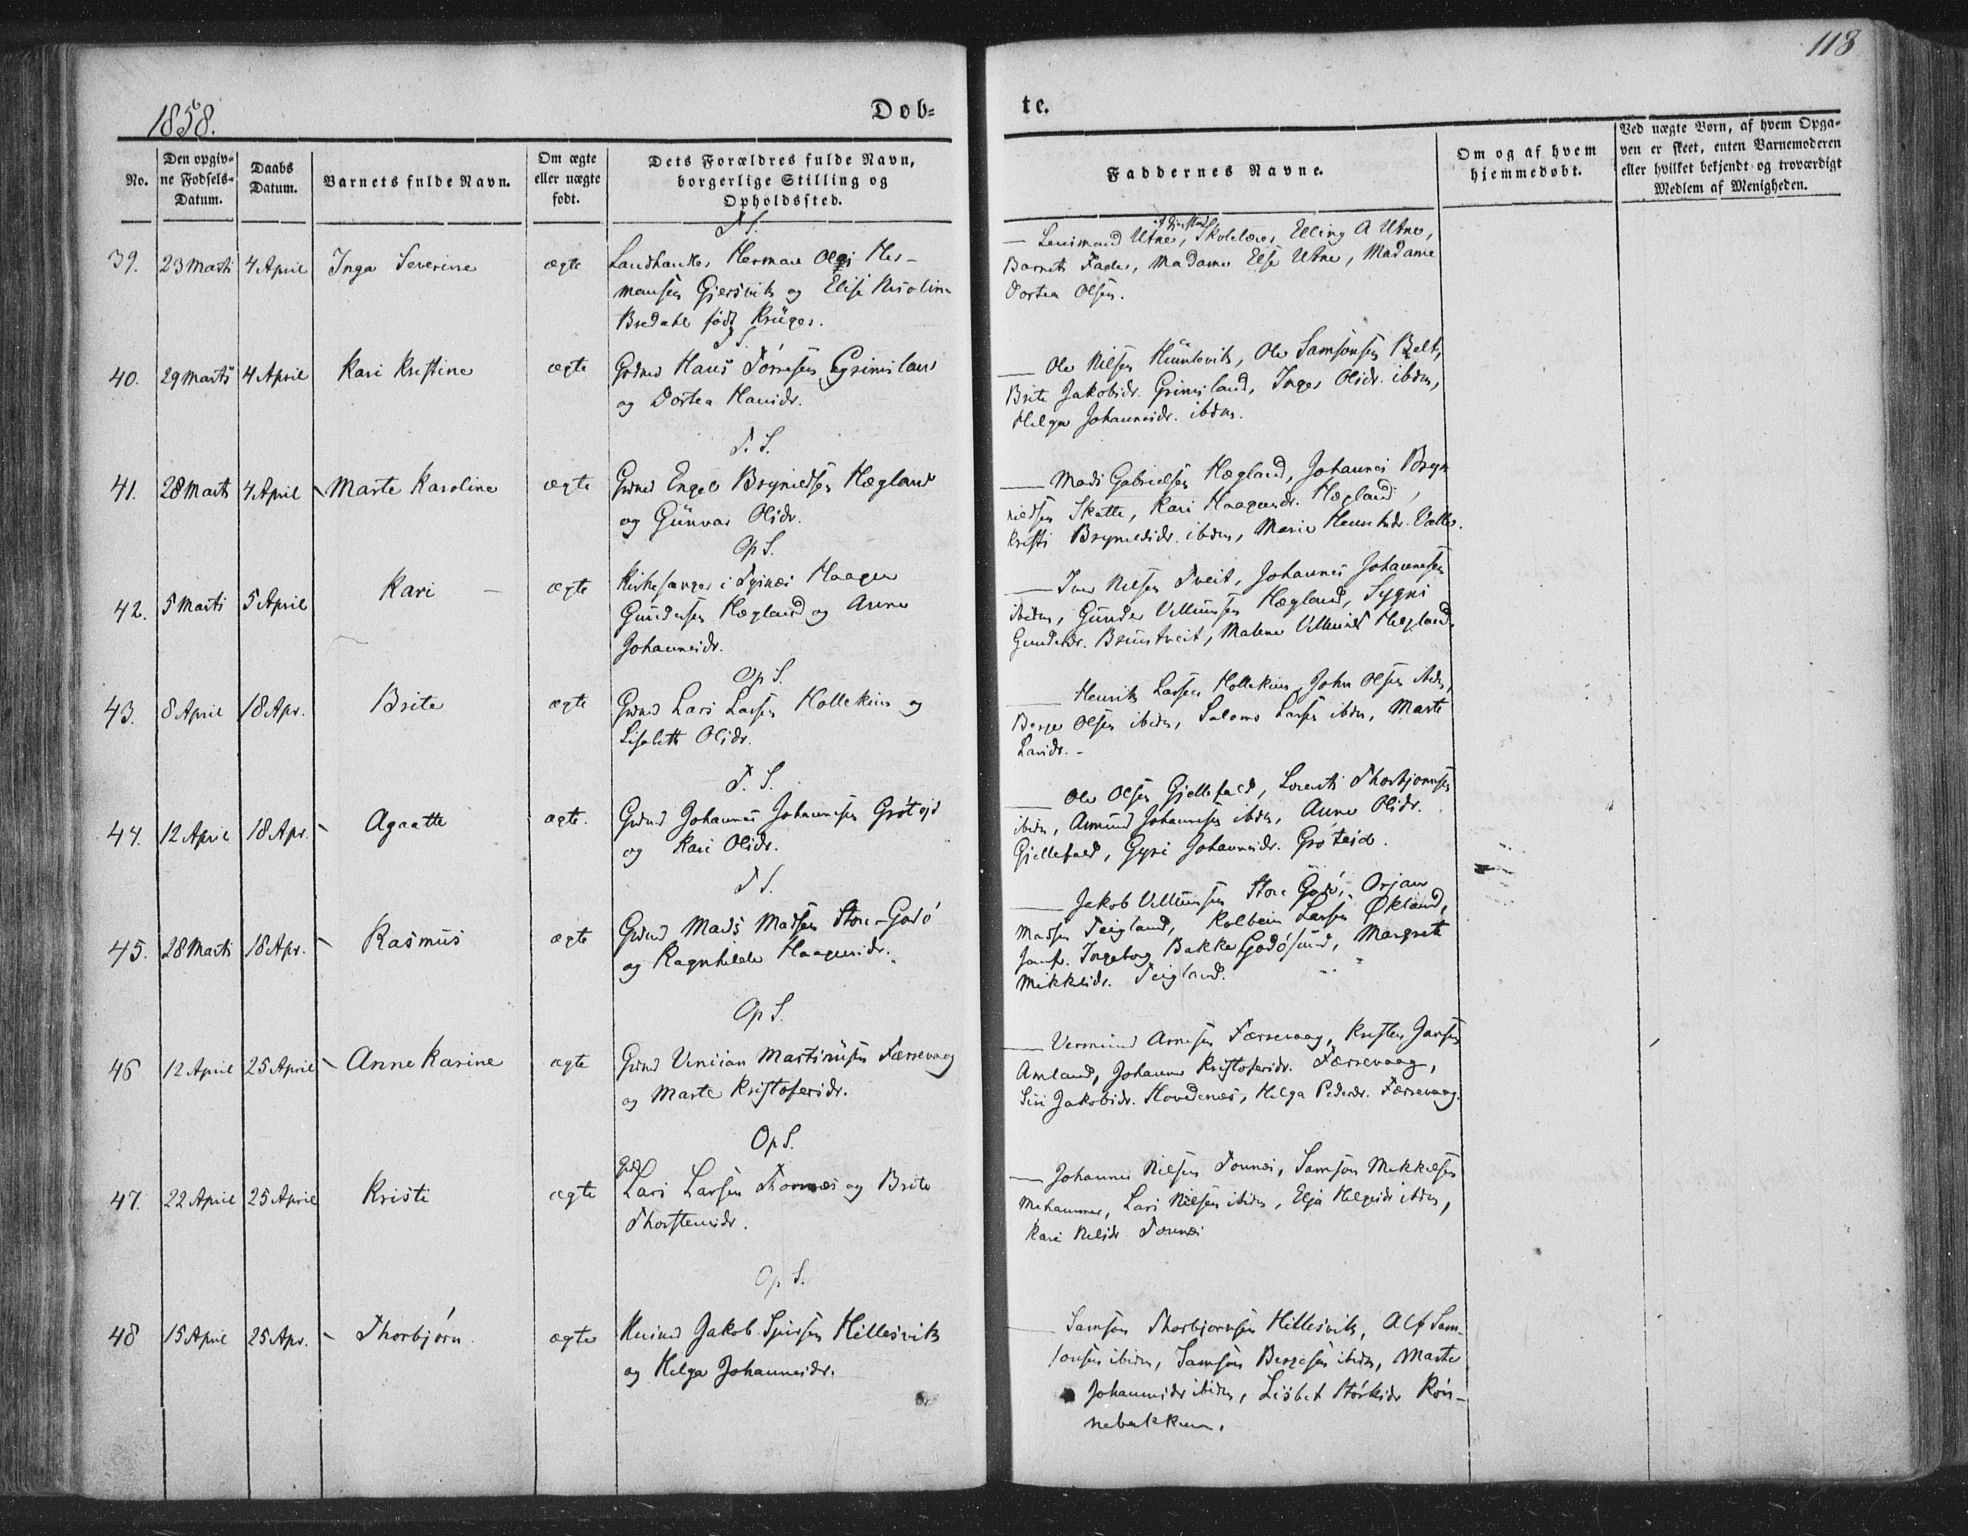 118
1858.
Døb-
te.
No.
Den opgiv-
ne Fødsels-
Datum.
Daabs
Datum.
Barnets fulde Navn.
Om ægte
eller uægte
født.
Dets Forældres fulde Navn,
borgerlige Stilling og
Opholdssted.
Faddernes Navne.
Om og af hvem
hjemmedøbt.
Ved uægte Børn, af hvem Opga-
ven er skeet, enten Barnemoderen
eller hvilket bekjendt og troværdigt
Medlem af Menigheden.
T S.
39. 23 Marts 4 April Inga Severine ægte
Landhandler Herman Olai Her-
mansen Gjersvik og Elise Nicoline
Bredahl født Krüger.
— Lensmand Utne, Skolelærer Elling A Utne,
Barnets Fader, Madame Else Utne, Madame
Dortea Olsen.
T S.
40. 29 Marts 4 April Kari Kristine ægte
Grdmd Hans Tørresen Grimsland
og Dortea Hansdr.
— Ole Nilsen, Ole Samsonsen Belt,
Brite Jakobsdr. Grimsland, Inger Olsdr. ibdm,
Helga Johannesdr. ibdm.
T. S.
41. 28 Marts 4 April Marte Karoline ægte
Grdmd Engel Brynildsen Hægland
og Gunvor Olsdr.
— Mads Gabrielsen Hægland, Johannes Bryn
nildsen Skatte, Kari Haagensdr. Hægland,
Kristi Brynildsdr. ibdm, Marie
Op S.
42. 5 Marts 5 April Kari — ægte
Kirkesanger i Tysnæs Haagen
Gundersen Hægland og Anna
Johannesdr.
— Iver Nilsen Tveit, Johannes Johannesen
ibidm, Gunder Villumsen Hægland, Sygni
Gundersdr. Bruntveit, Malene Villumsd Hægland.
Op S.
43. 8 April 18 Apr. Brita ægte
Grdmd Lars Larsen Hollekim og
Lisabeth Olsdr.
— Henrik Larsen Hollekim, John Olsen ibdm,
Børge Olsen ibidm, Salamo Larsen ibdm, Marte
Larsdr. -
T. S.
44. 12 April 18 Apr. Agaatte ægte.
Grdmd Johannes Johannesen
og Kari Olsdr.
— Ole Olsen Gjellefald, Lorents Thorbjørnsen
ibidm, Amund Johannesen ibdm, Anne Olsdr.
Gjellefald, Gyri Johannesdr.
T S.
45. 28 Marts 18 Apr. Rasmus ægte
Grdmd Mads Madsen Store-Godø
og Ragnhilde Haagensdr.
— Jakob Villumsen Store Godø, Ørjan
Madsen Teigland, Kolbein Larsen Økland,
Jomfr. Ingeborg Bakke Godøsund, Margrete
Mikkelsdr. Teigland.
Op S.
46 12 April 25 April Anne Karine ægte
Grdmd Martinusen Færrevaag
og Marte Kristofersdr.
— Vermund Arnesen Færrevaag, Kristen
Amland, Johanna Kristofersdr. Færrevaag,
Siri Jakobsdr. Hovdenæs, Helga Pedersdr. Færrevaag.
Op S.
47. 22 April 25 April Kristi ægte
Grdmd
Lars Larsen og Brite
Thorstensdr.
— Johannes Nielsen, Samson Mikkelsen
Mehammer, Lars Nielsen ibidm, Elja Helgesdr ibdm,
Kari Nilsdr
Op S.
48 15 April 25 Apr. Thorbjørn ægte
Husmd Jakob Sjursen Hillesvik
og Helga Johannesdr.
Samson Thorbjørnsen Hillesvik, Alf Sam-
sonsen ibidm, Samson Børgesen ibidm, Marte
Johannesdr ibidm, Lisbet Størksdr Røn-
nebakken.